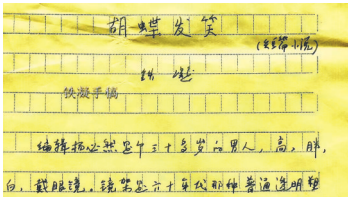 胡蝶发笑
(短篇小说)
铁凝
铁凝手稿
编辑杨必然是个三十多岁的男人，高，胖，
白，戴眼镜。镜架是六十年代那种普通透明塑